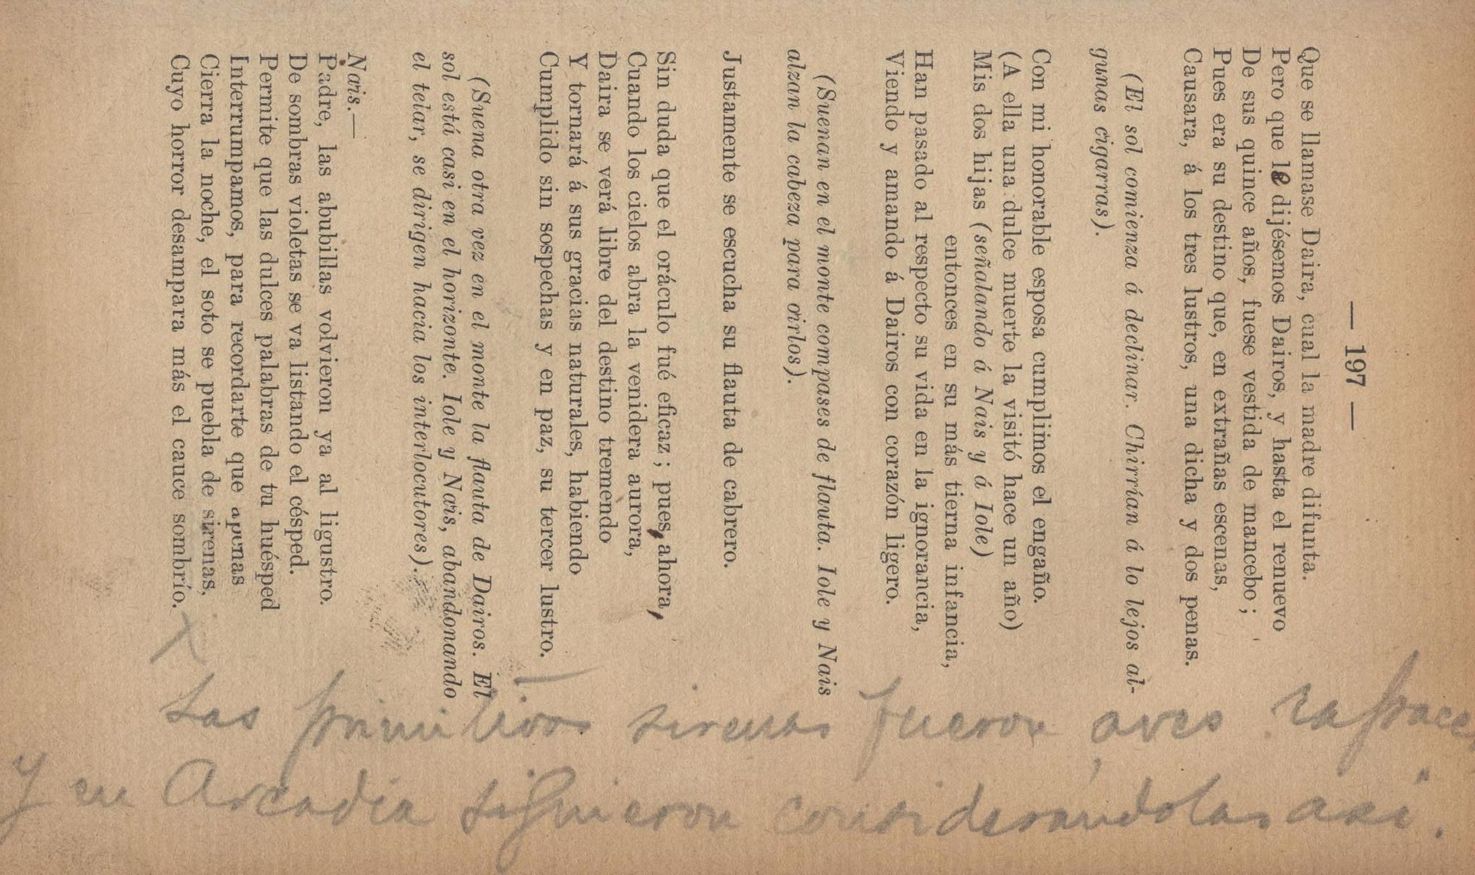 — 197 —
Que se llamase Daira, cual la madre difunta.
Pero que le dijésemos Dairos, y hasta el renuevo
De sus quince años, fuese vestida de mancebo;
Pues era su destino que, en extrañas escenas,
Causara, á los tres lustros, una dicha y dos penas.
(El sol comienza á declinar. Chirrían á lo lejos al-
gunas cigarras).
Con mi honorable esposa cumplimos el engaño.
(A ella una dulce muerte la visitó hace un año)
Mis dos hijas (señalando á Nais y á Iole)
entonces en su más tierna infancia,
Han pasado al respecto su vida en la ignorancia,
Viendo y amando á Dairos con corazón ligero.
(Suenan en el monte compases de flauta. Iole y Nais
alzan la cabeza para oirlos).
Justamente se escucha su flauta de cabrero.
Sin duda que el oráculo fué eficaz; pues, ahora,
Cuando los cielos abra la venidera aurora,
Daira se verá libre del destino tremendo
Y tornará á sus gracias naturales, habiendo
Cumplido sin sospechas y en paz, su tercer lustro.
(Suena otra vez en el monte la flauta de Dairos. El
sol está casi en el horizonte. Iole y Nais, abandonando
el telar, se dirigen hacia los interlocutores).
Nais.—
Padre, las abubillas volvieron ya al ligustro.
De sombras violetas se va listando el césped.
Permite que las dulces palabras de tu huésped
Interrumpamos, para recordarte que apenas
Cierra la noche, el soto se puebla de sirenas,
Cuyo horror desampara más el cauce sombrío.
X
Las primitivas sirenas fueron aves rapaces
Y en Arcadia siguieron considerándolas así.